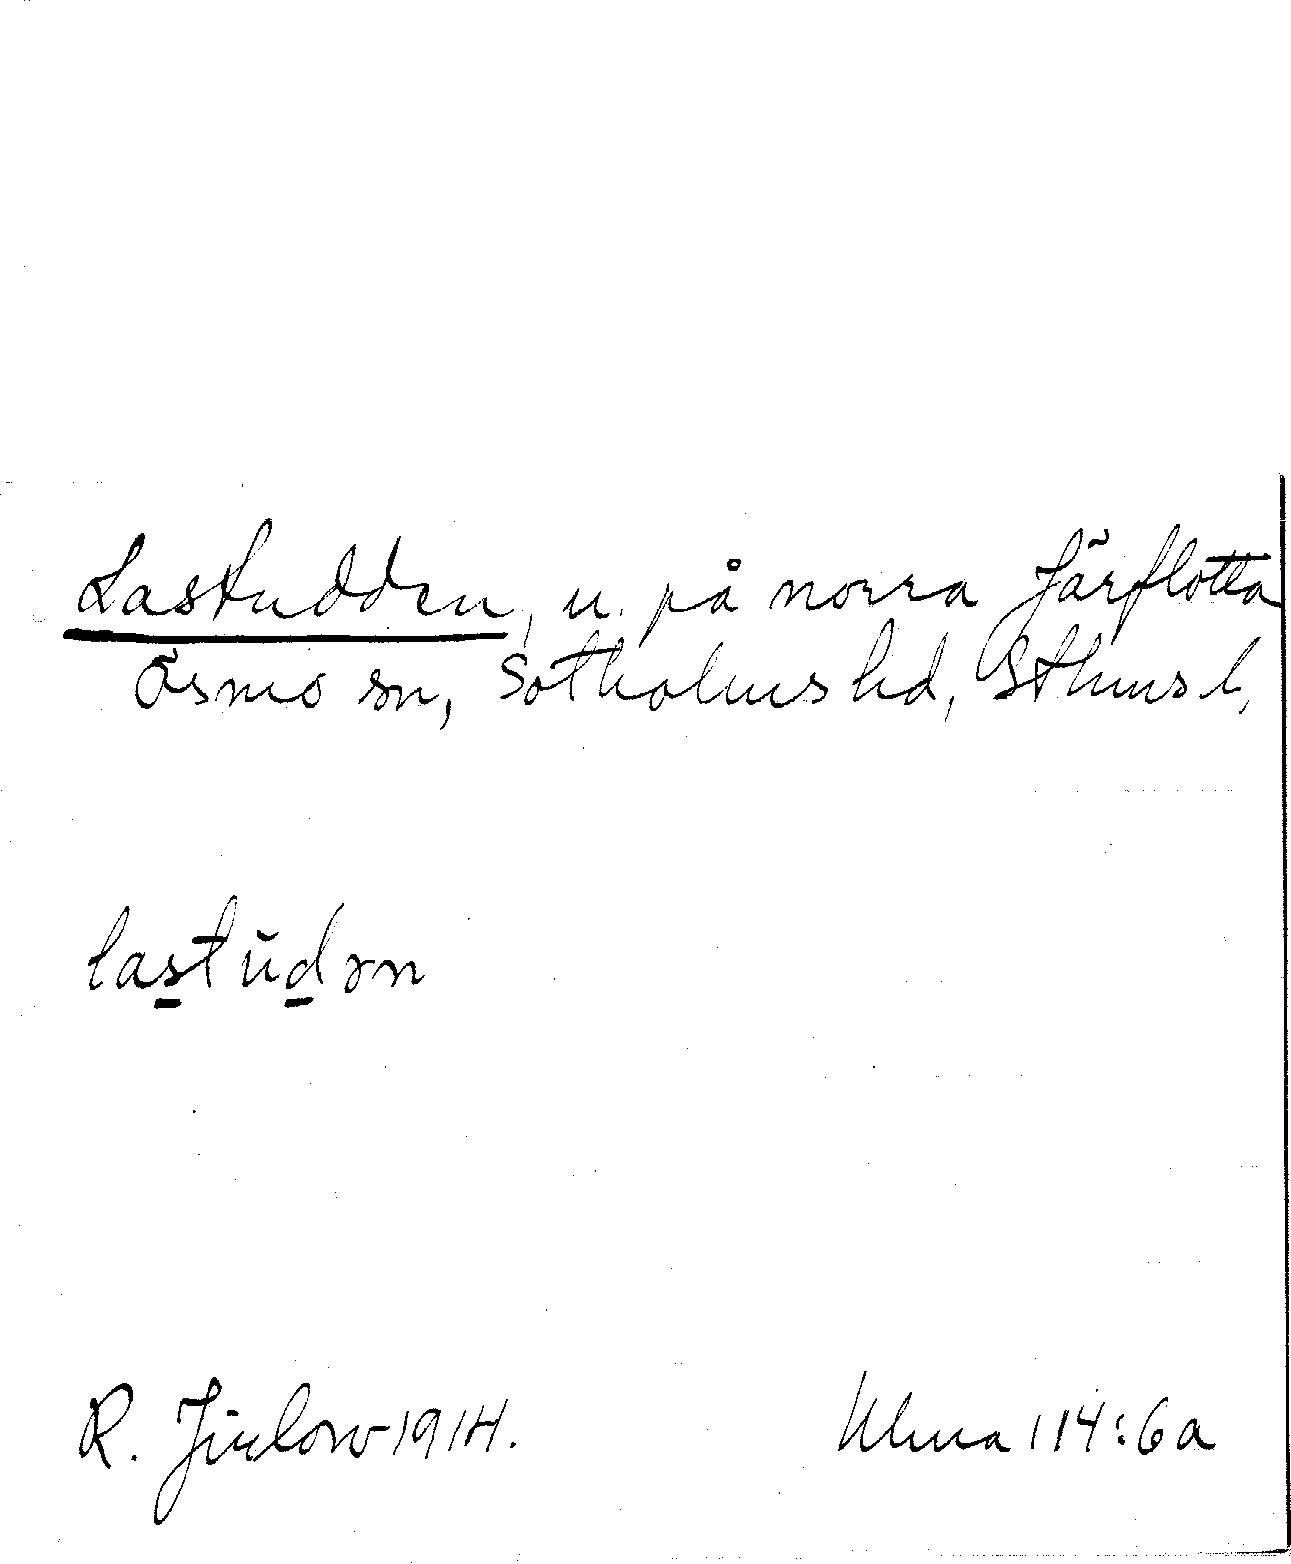 Lastudden, u. på norra Järflotta
Ösmo sn, Sotholms hd, Sthms l,
lastŭdən
R. Jirlow 1914.
Ulma 114:6a